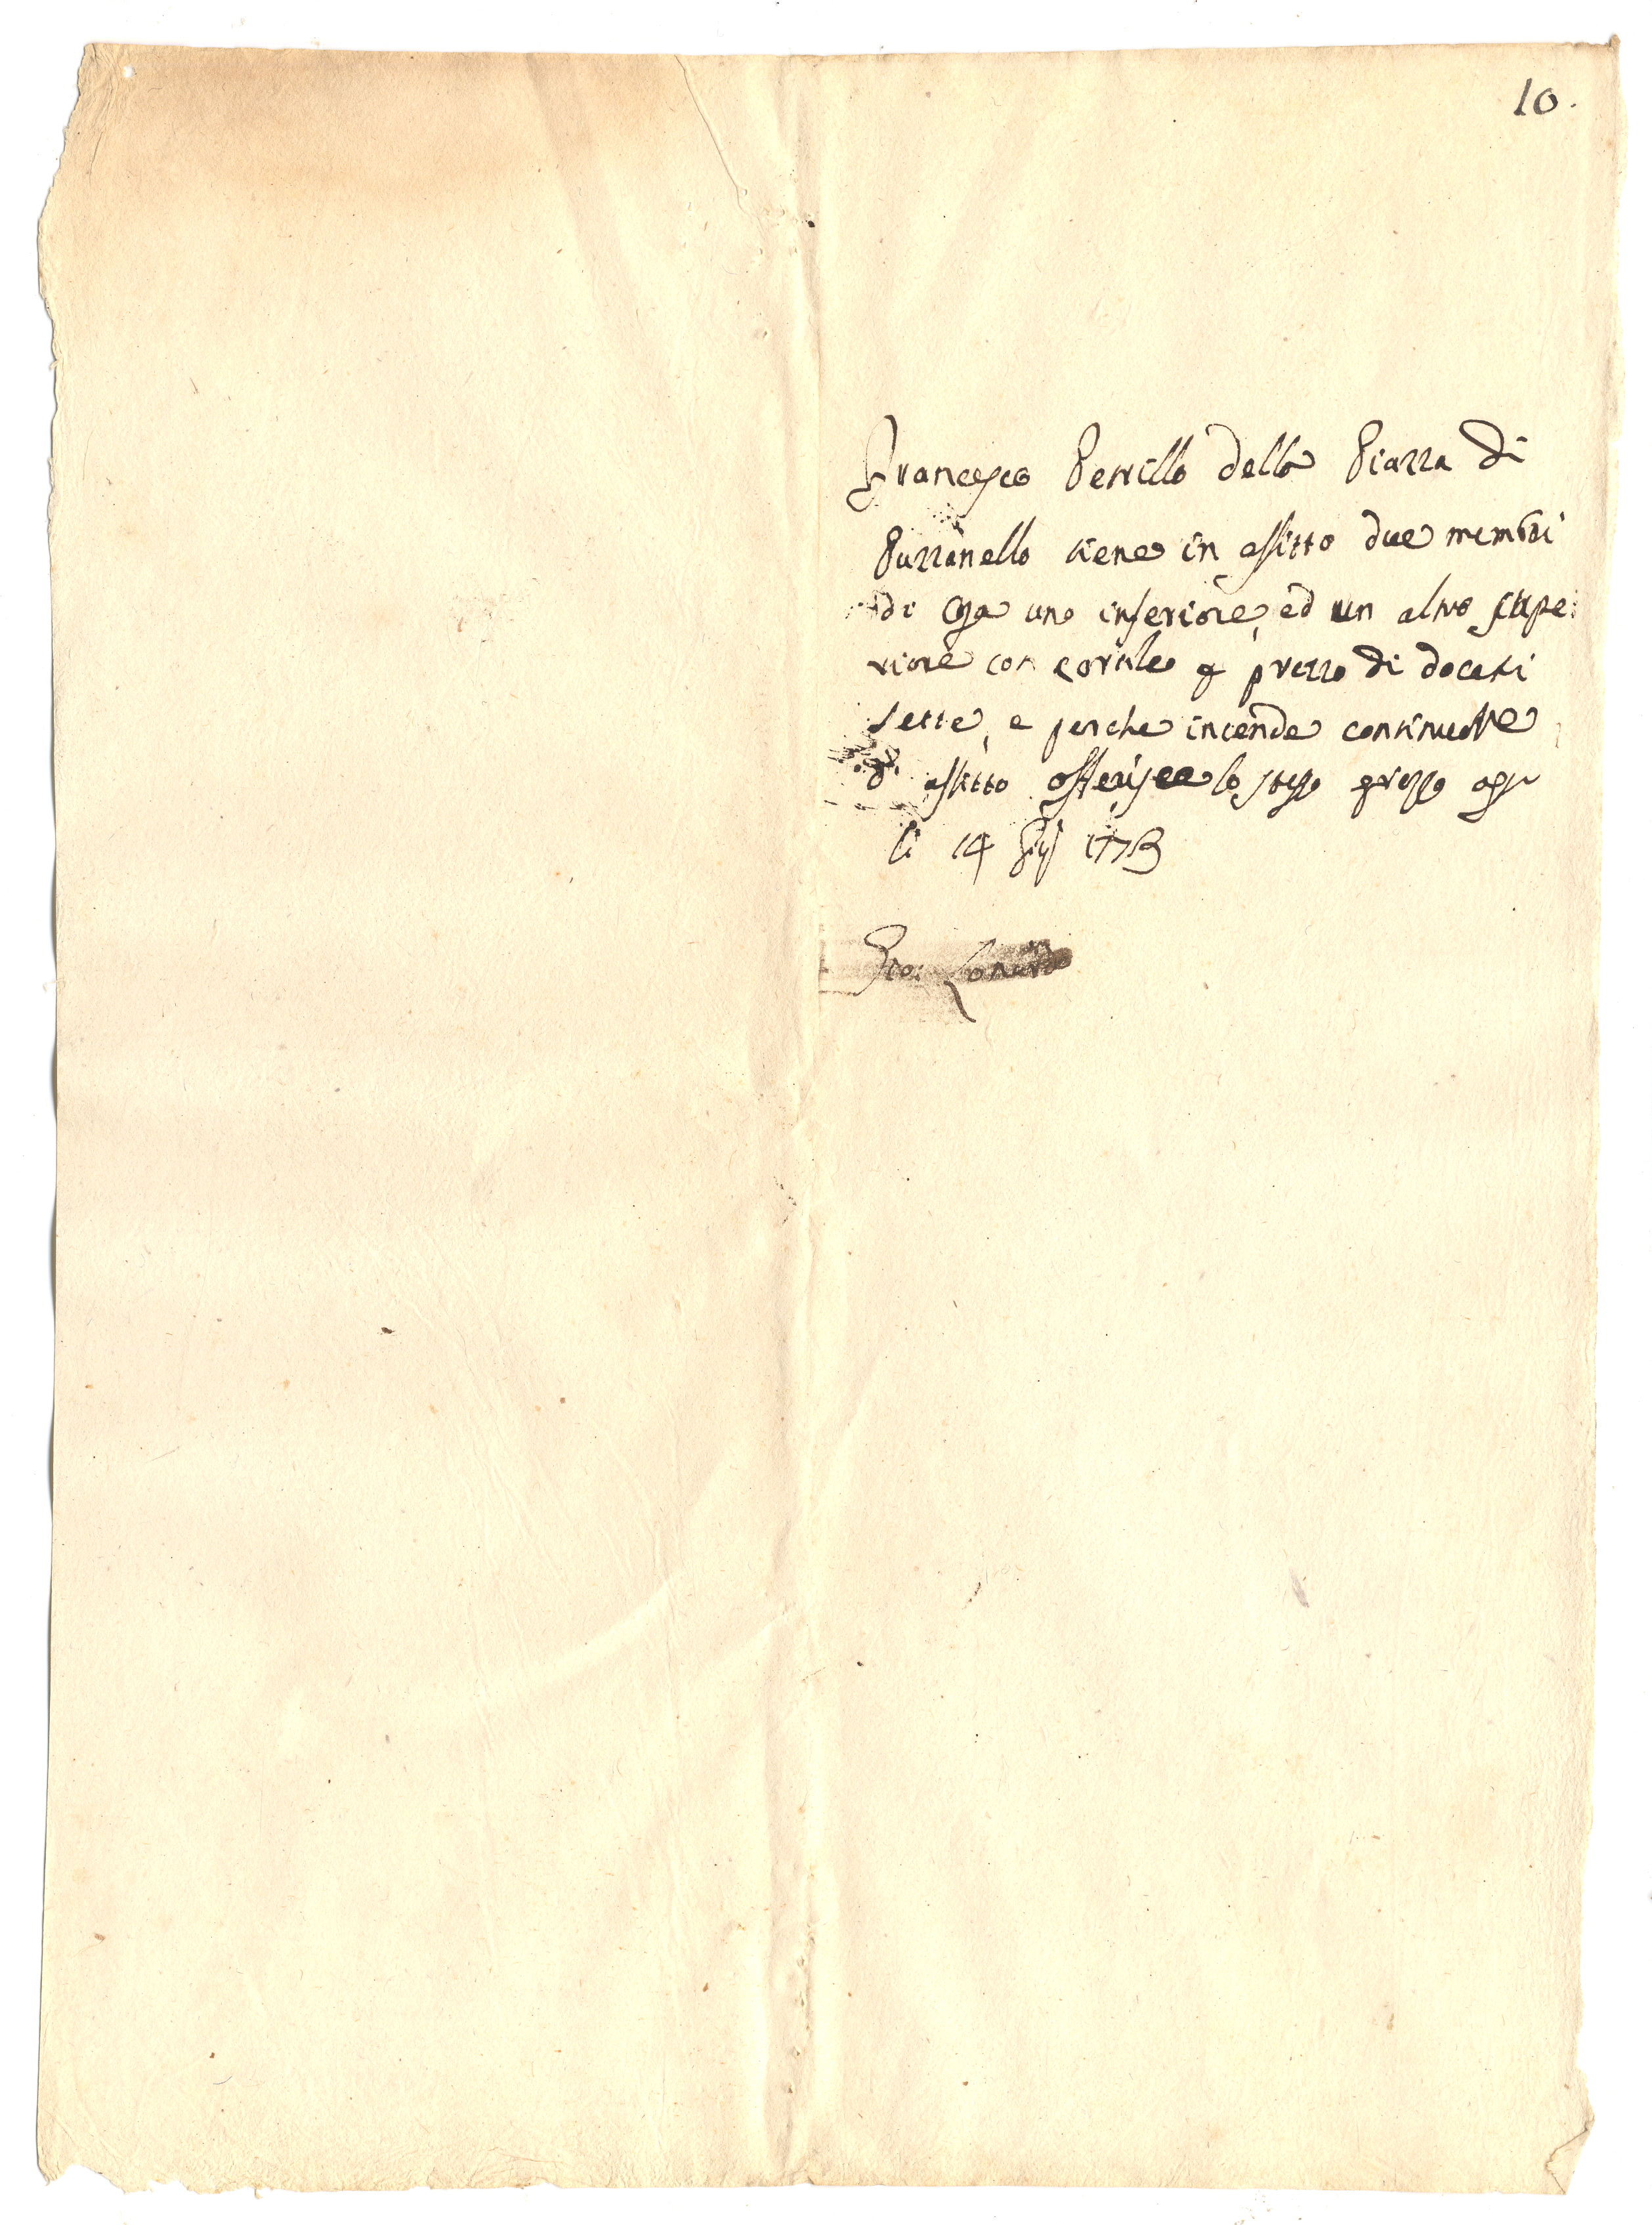 10.
Francesco Perrillo della Piazza di
Puzzanello tiene in affitto due membri
di Casa uno inferiore, ed un altro supe:
riore con cortile p prezzo di docati
sette, e perche intende continuare
d. affitto offerisce lo stesso prezzo oggi
li 14 1773
Gio: Lonardo